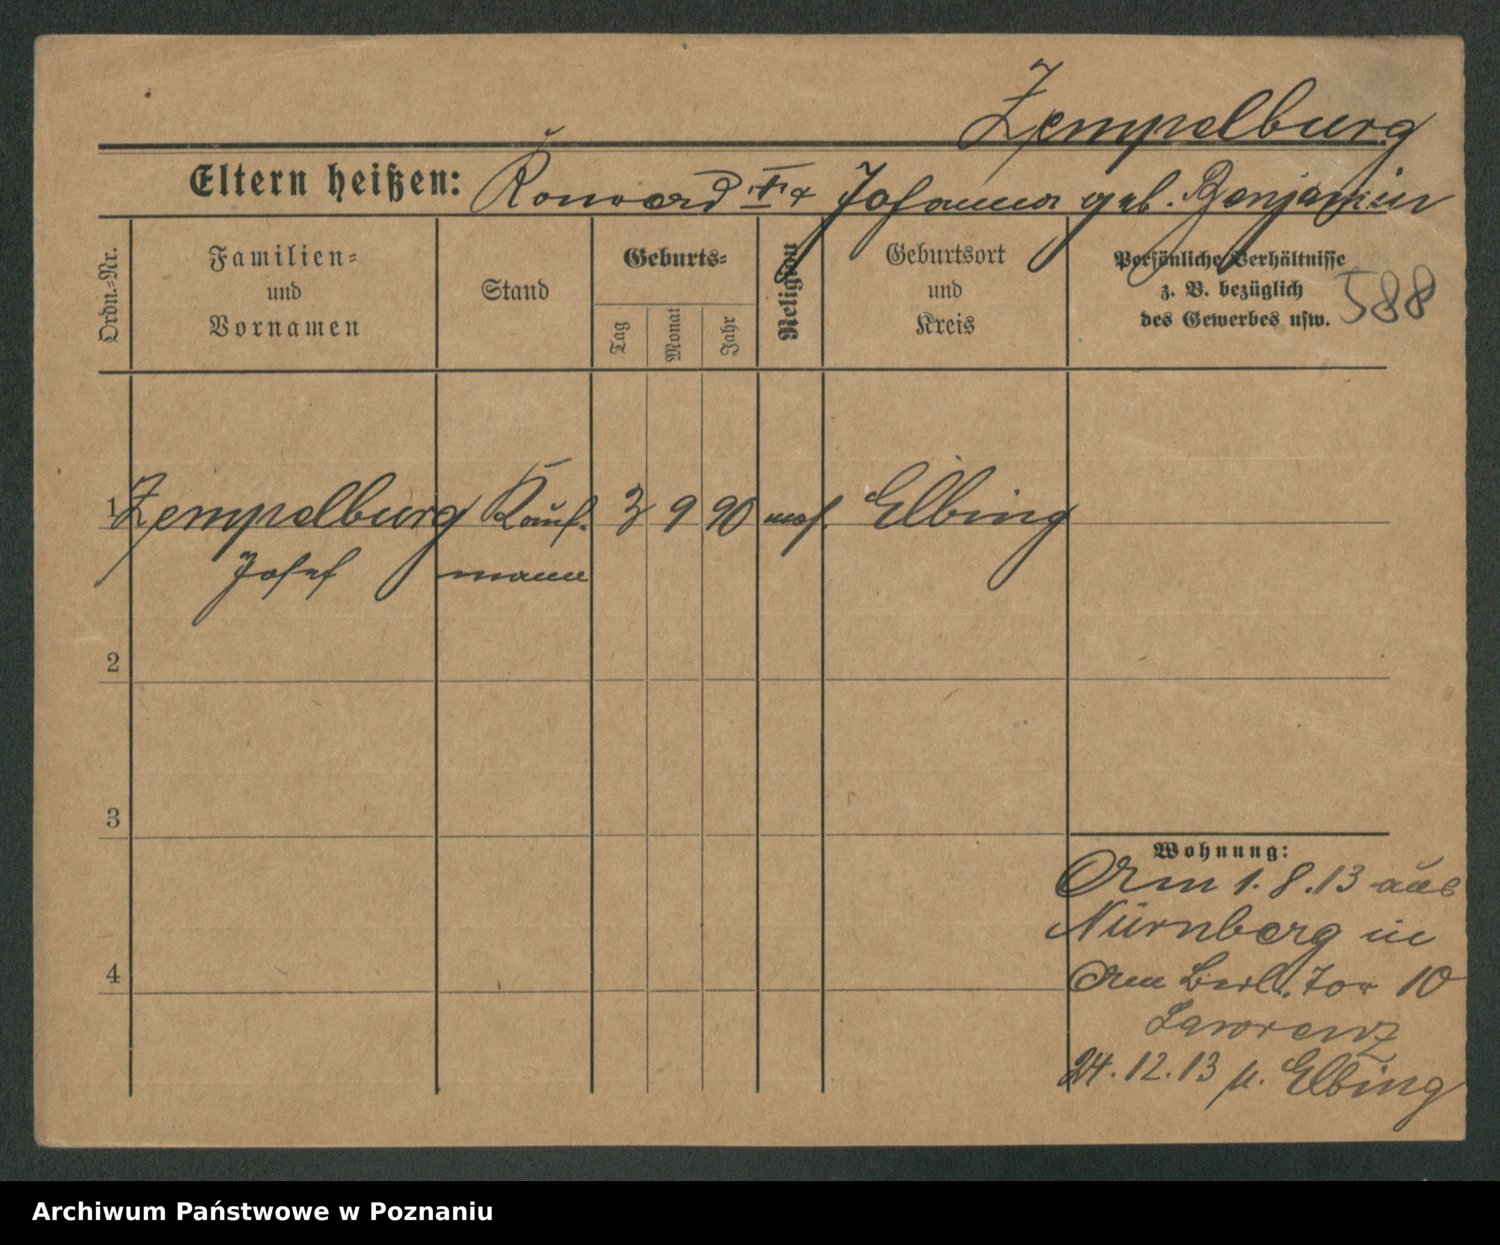 Zempelburg
Eltern heißen: Konrad † & Johanna geb. Benjamin
Ordn.-Nr.
Familien-
und
Vornamen
Stand
Geburts-
Tag
Monat
Jahr
Religion
Geburtsort
und
Kreis
Persönliche Verhältnisse
z. B. bezüglich
des Gewerbes usw.
588
1 Zempelburg Kauf- 3 9 90 mos. Elbing
Josef mann
2
3
4
Wohnung:
Am 1.8.13 aus
Nürnberg in
Am Berl. Tor 10
Lawrenz
24.12.13 n. Elbing
Archiwum Państwowe w Poznaniu